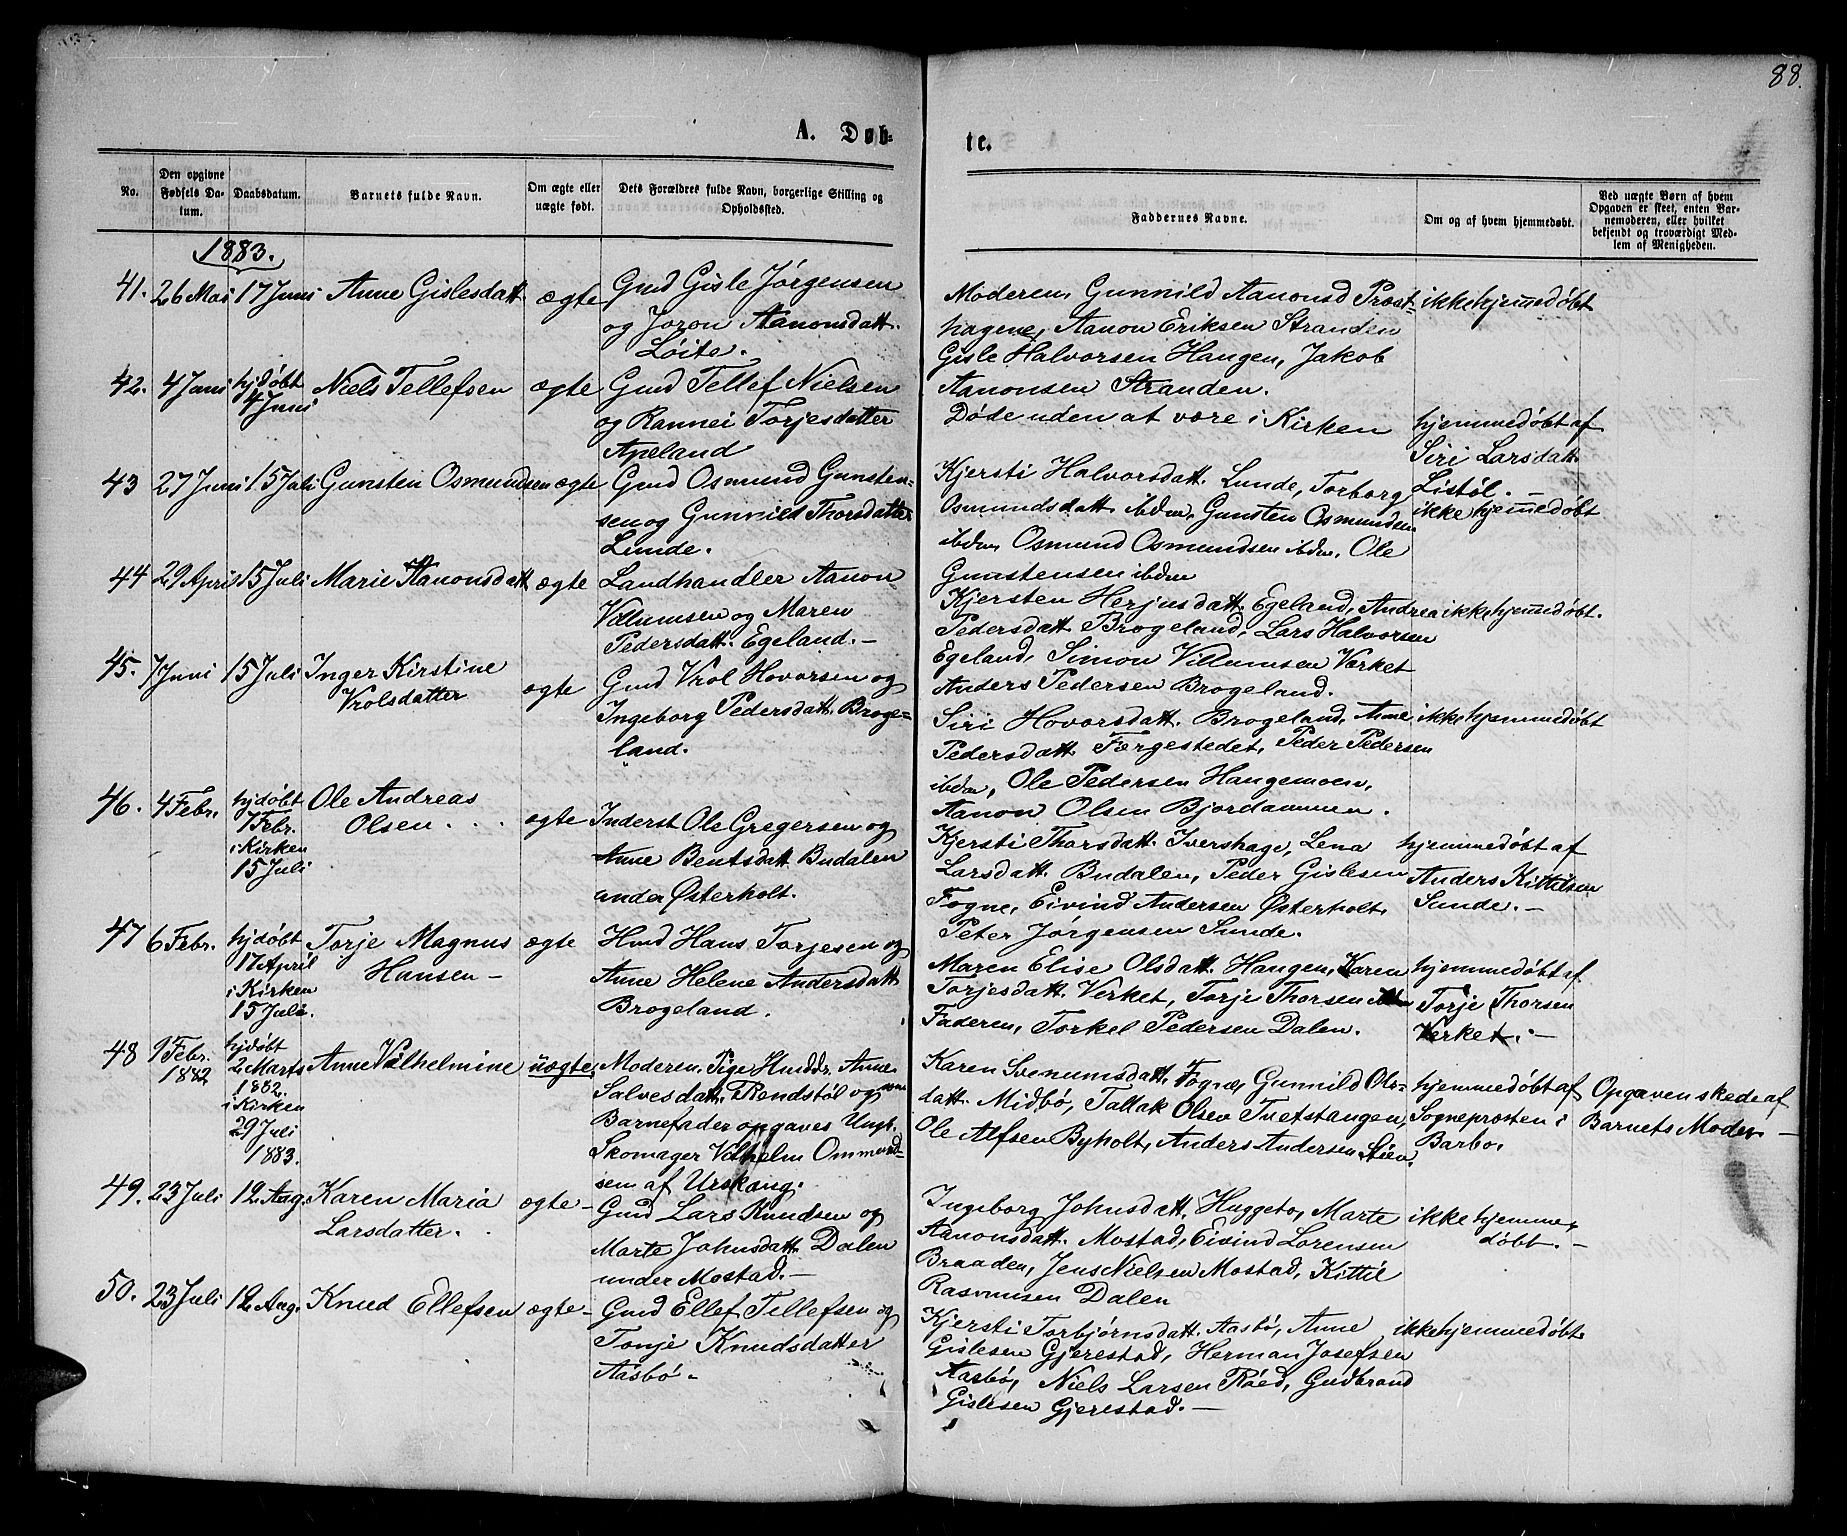 88.
A. Døb-
te.
No.
Den opgivne Fødsels Datum.
Daabsdatum.
Barnets fulde Navn.
Om ægte eller uægte født.
Dets Forældres fulde Navn, borgerlige Stilling og Opholdssted.
Faddernes Navne.
Om og af hvem hjemmedøbt.
Ved uægte Børn af hvem Opgaven er skeet, enten Barnemoderen, eller hvilket bekjendt og troværdigt Medlem af Menigheden.
1883.
41. 26 Mai 17 Juni Anne Gislesdatt ægte Gmd Gisle Jørgensen
og Joron Aanonsdatt.
Løite.
Moderen, Gunnild Aanonsd Præst-
hagene, Aanon Eriksen Stranden
Gisle Halvorsen Haugen, Jakob
Aanonsen Stranden.
ikke hjemmedøbt
42. 4 Juni hjdøbt
4 Juni
Niels Tellefsen ægte Gmd Tellef Nielsen
og Rannei Torjesdatter
Apeland
Døde uden at være i Kirken
hjemmedøbt af
Siri Larsdatt.
Listøl. —
43 27 Juni 15 Juli Gunsten Osmundsen ægte Gmd Osmund Gunsten-
sen og Gunnild Thorsdatter
Lunde.
Kjersti Halvorsdatt. Lunde, Torborg
Osmundsdatt. ibdm, Gunsten Osmundsen
ibdm, Osmund Osmundsen ibdm, Ole
Gunstensen ibdm
ikke hjemmedøbt
44 29 April 15 Juli Marie Aanonsdatt ægte Landhandler Aanon
Villumsen og Maren
Pedersdatt. Egeland. —
Kjersten Herjusdatt. Egeland, Andrea
Pedersdatt. Brogeland, Lars Halvorsen
Egeland, Simon Villumsen Værket
Anders Pedersen Brogeland.
ikke hjemmedøbt.
45. 7 Juni 15 Juli Inger Kirstine
Vrolsdatter
ægte
Gmd Vrol Hovorsen og
Ingeborg Pedersdatt. Broge-
land.
Siri Hovorsdatt. Brogeland, Anne
Pedersdatt. Færgestedet, Peder Pedersen
ibdm, Ole Pedersen Haugemoen,
Aanon Olsen Bjordammen.
ikke hjemmedøbt
46. 4 Febr. hjdøbt
7 Febr.
i Kirken
15 Juli
Ole Andreas
Olsen . . .
ægte
Inderst Ole Gregersen og
Anne Bentsdatt. Budalen
under Østerholt.
Kjersti Thorsdatt. Ivershage, Lena
Larsdatt. Budalen, Peder Gislesen
Fogne, Eivind Andersen Østerholt,
Peter Jørgensen Sunde.
hjemmedøbt af
Anders Kittilsen
Sunde. —
47 6 Febr. hjdøbt
17 April
i Kirken
15 Juli.
Torje Magnus
Hansen —
ægte
Hmd Hans Torjesen og
Anne Helene Andersdatt.
Brogeland.
Maren Elise Olsdatt. Haugen, Karen
Torjesdatt. Verket, Torje Thorsen
Faderen, Torkel Pedersen Dalen.
hjemmedøbt af
Torje Thorsen
Værket. —
48 1 Febr.
1882
hjdøbt
2 Marts
1882.
i Kirken
29 Juli
1883.
Anne Vilhelmine uægte.
Moderen, Pige Husdr. Anne
Salvesdatt. Rendstøl og som
Barnefader opgaves Ungk.
Skomager Vilhelm Ommund-
sen af Urskaug.
Karen Svenumsdatt. Fogne, Gunnild Ols-
datt. Midbø, Tallak Olsen Tvetstangen,
Ole Alfsen Byholt, Anders Andersen Stien.
hjemmedøbt af
Sogneprosten i
Barbo.
Opgaven skede af
Barnets Moder —
49. 23 Juli 12 Aug. Karen Maria
Larsdatter.
ægte —
Gmd Lars Knudsen og
Marte Johnsdatt. Dalen
under Mostad. —
Ingeborg Johnsdatt. Huggeto, Marte
Aanonsdatt. Mostad, Eivind Lorensen
Braaden, Jens Nielsen Mostad, Kittil
Rasmusen Dalen
ikke hjemme-
døbt. —
50. 23 Juli 12 Aug. Knud Ellefsen ægte — Gmd Ellef Tellefsen og
Tonje Knudsdatter
Aasbø —
Kjersti Torbjørnsdatt. Aasbø, Anne
Gislesen Gjerestad, Herman Josefsen
Aasbø, Niels Larsen Røed, Gudbrand
Gislesen Gjerestad. —
ikke hjemmedøbt